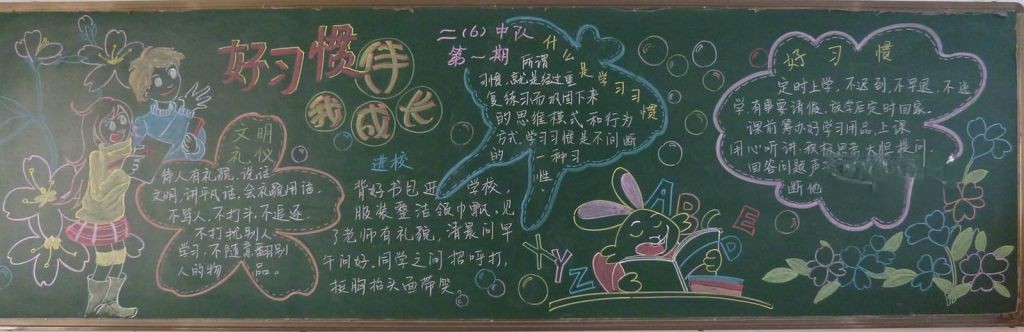 好习惯伴
我成长
二(6)中队
第一期
文明
礼仪
待人有礼貌,说话
文明,讲平凡话,会礼貌用语.
不骂人,不打斗,不追逐.
不打扰别人
学习.不随意翻别
人的物品.
进校
背好书包进学校,
服装整洁领巾飘,见
了老师有礼貌,清晨问早
午问好.同学之间招呼打,
挺胸抬头面带笑.
什么是学习习惯
所谓
习惯,就是经过重
复练习而巩固下来
的思维模式和行为
方式,学习习惯是不间断
的一种习
性.
好习惯
定时上学,不迟到,不早退,不逃
学,有事要请假,放学后定时回家.
课前筹办好学习用品,上课
用心听讲,积极思考,大胆提问.
回答问题声
断他
A B C D E
X Y Z